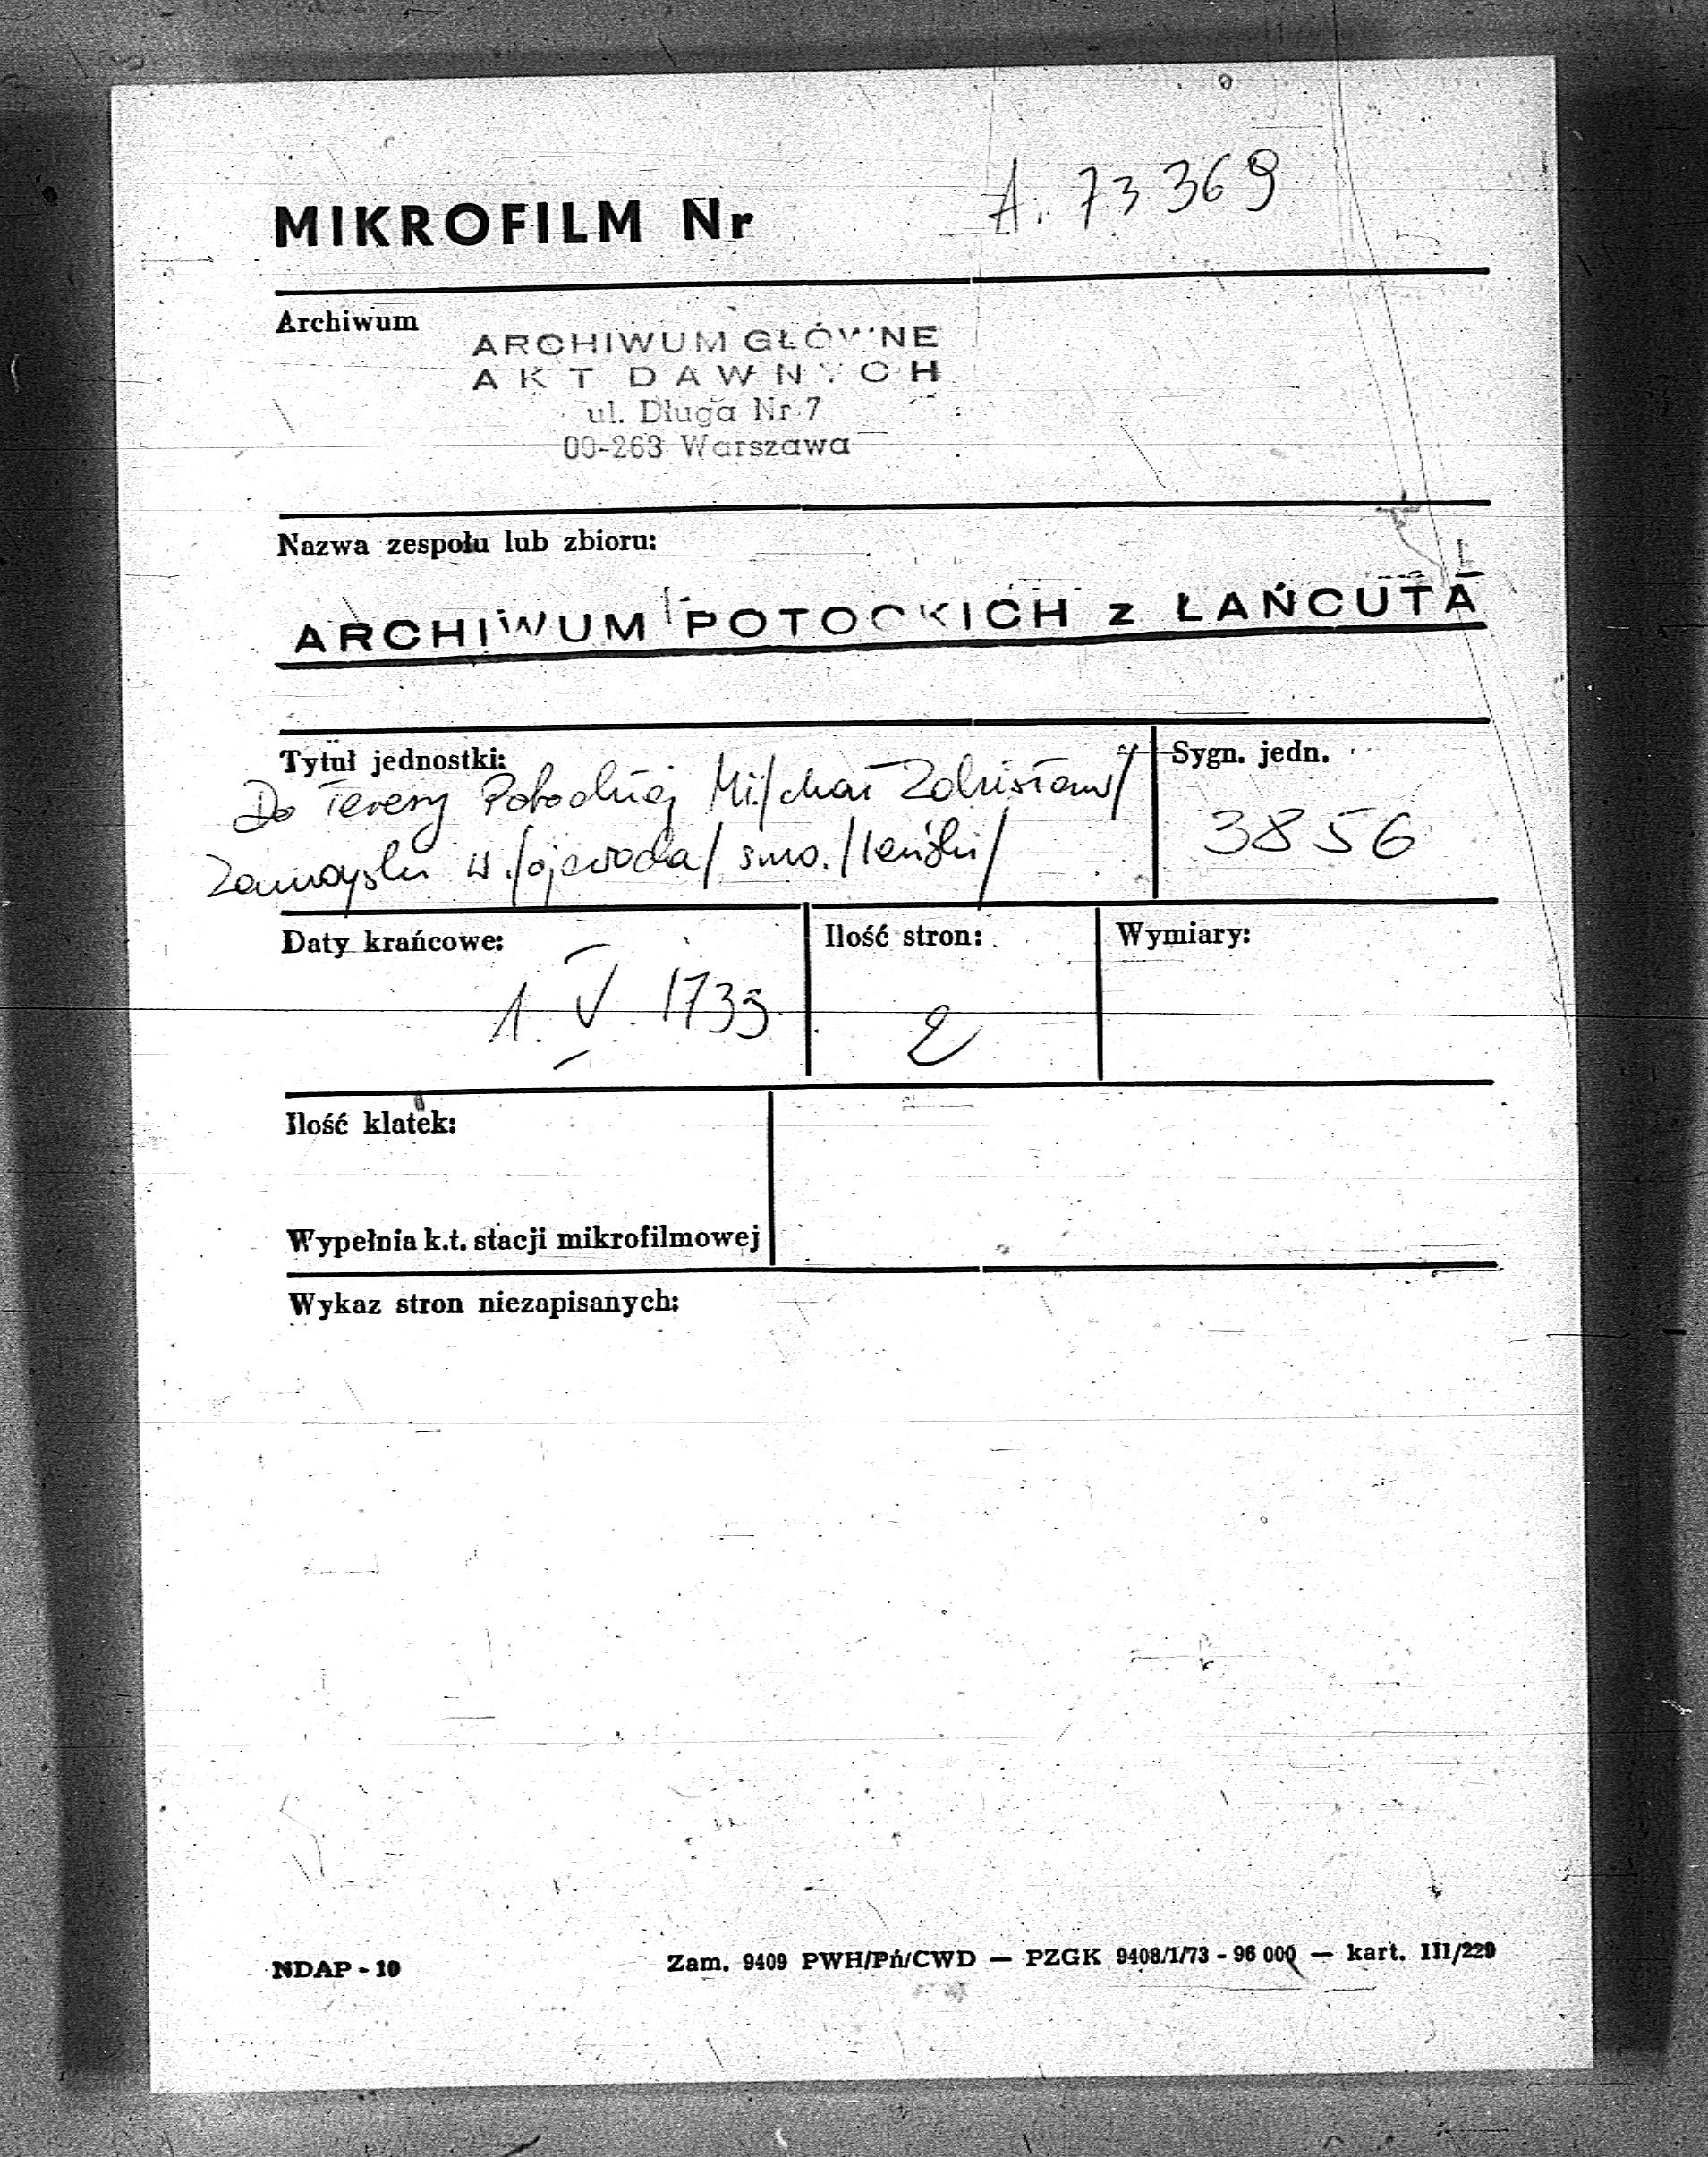 MIKROFILM Nr A. 73 369
Archiwum
ARCHIWUM GŁÓWNE
AKT DAWNYCH
ul. Długa Nr 7
00-263 Warszawa
Nazwa zespołu lub zbioru:
ARCHIWUM POTOCKICH z ŁAŃCUTA
Tytuł jednostki:
Do Teresy Potockiej Mi/chał Zdzisław/
Zamoyski w./ojewoda/ smo./leński/
Sygn. jedn.
3856
Daty krańcowe:
1. V. 1733
Ilość stron:
2
Wymiary:
Ilość klatek:
Wypełnia k.t. stacji mikrofilmowej
Wykaz stron niezapisanych:
NDAP - 10
Zam. 9409 PWH/Pń/CWD — PZGK 9408/1/73 - 96 000 — kart. III/229